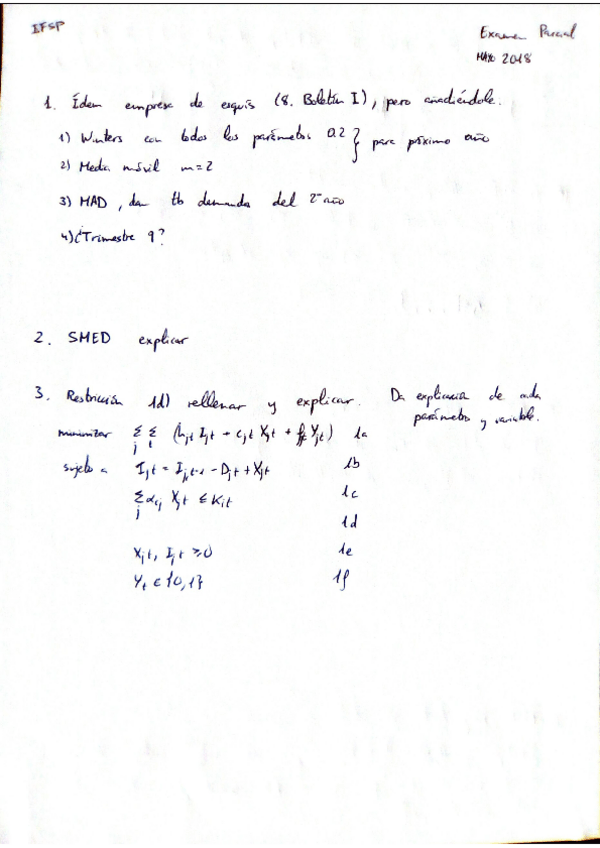 IFSP
Examen Parcial
Mayo 2018
1. Ídem empresa de esquís (8. Boletín I), pero añadiéndole.
1) Winters con todos los parámetros 0.2 } para próximo año
2) Media móvil m=2
3) MAD, dan tb demanda del 2º año
4) ¿Trimestre 9?
2. SMED explicar
3. Restricción 1d) rellenar y explicar. Da explicación de cada
parámetro y variable.
minimizar Σj Σt (hjt Ijt + cjt Xjt + fjt Yjt) 1a
sujeto a Ijt = Ij,t-1 - Djt + Xjt 1b
Σj αij Xjt ≤ Kit 1c
1d
Xjt, Ijt ≥0 1e
Yt ∈ {0,1} 1f